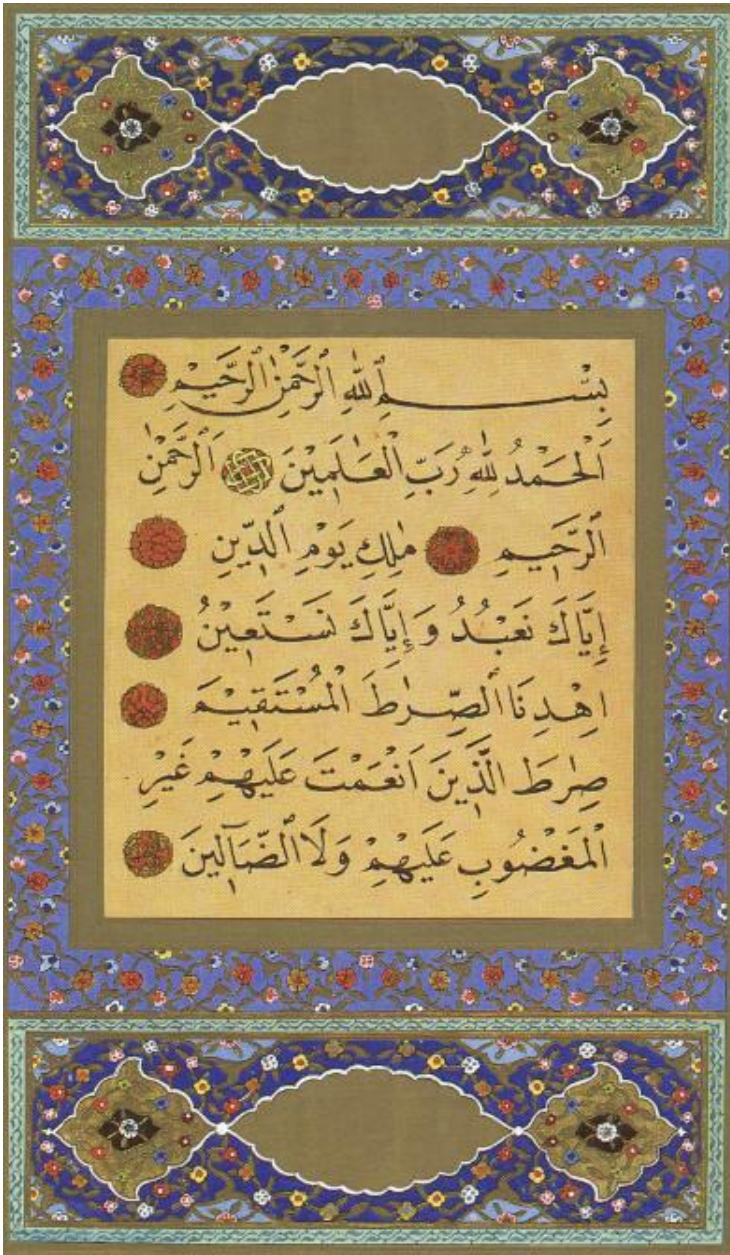 بِسْمِ ٱللّٰهِ ٱلرَّحْمٰنِ ٱلرَّحِيمِ
اَلْحَمْدُ لِلّٰهِ رَبِّ ٱلْعَالَمِينَ اَلرَّحْمٰنِ
ٱلرَّحِيمِ مٰلِكِ يَوْمِ ٱلدِّينِ
إِيَّاكَ نَعْبُدُ وَإِيَّاكَ نَسْتَعِينُ
اهْدِنَا ٱلصِّرٰطَ الْمُسْتَقِيمَ
صِرٰطَ الَّذِينَ اَنْعَمْتَ عَلَيْهِمْ غَيْرِ
الْمَغْضُوبِ عَلَيْهِمْ وَلَا ٱلضَّآلِّينَ